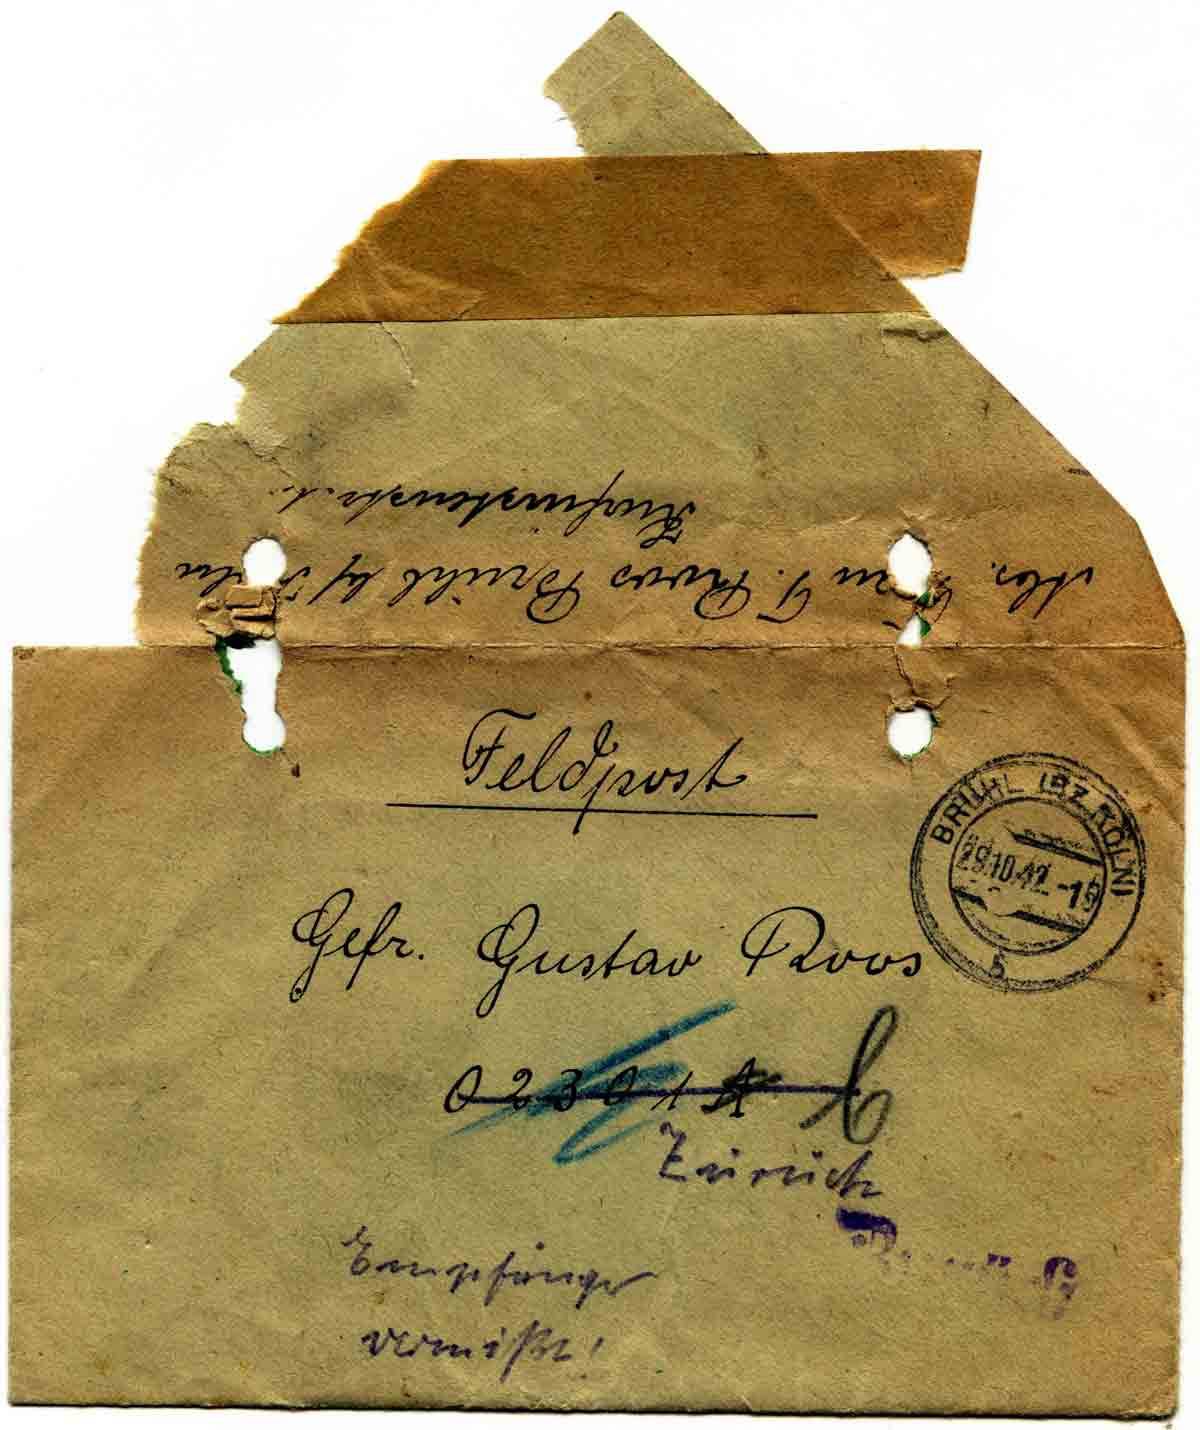 Abs. Frau G. Roos Brühl b/ Köln
Kurfürstenstr.
Feldpost
BRÜHL (BZ. KÖLN)
29.10.42.-15
b
Gefr. Gustav Roos
02301 A
Zurück
Empfänger
vermißt!